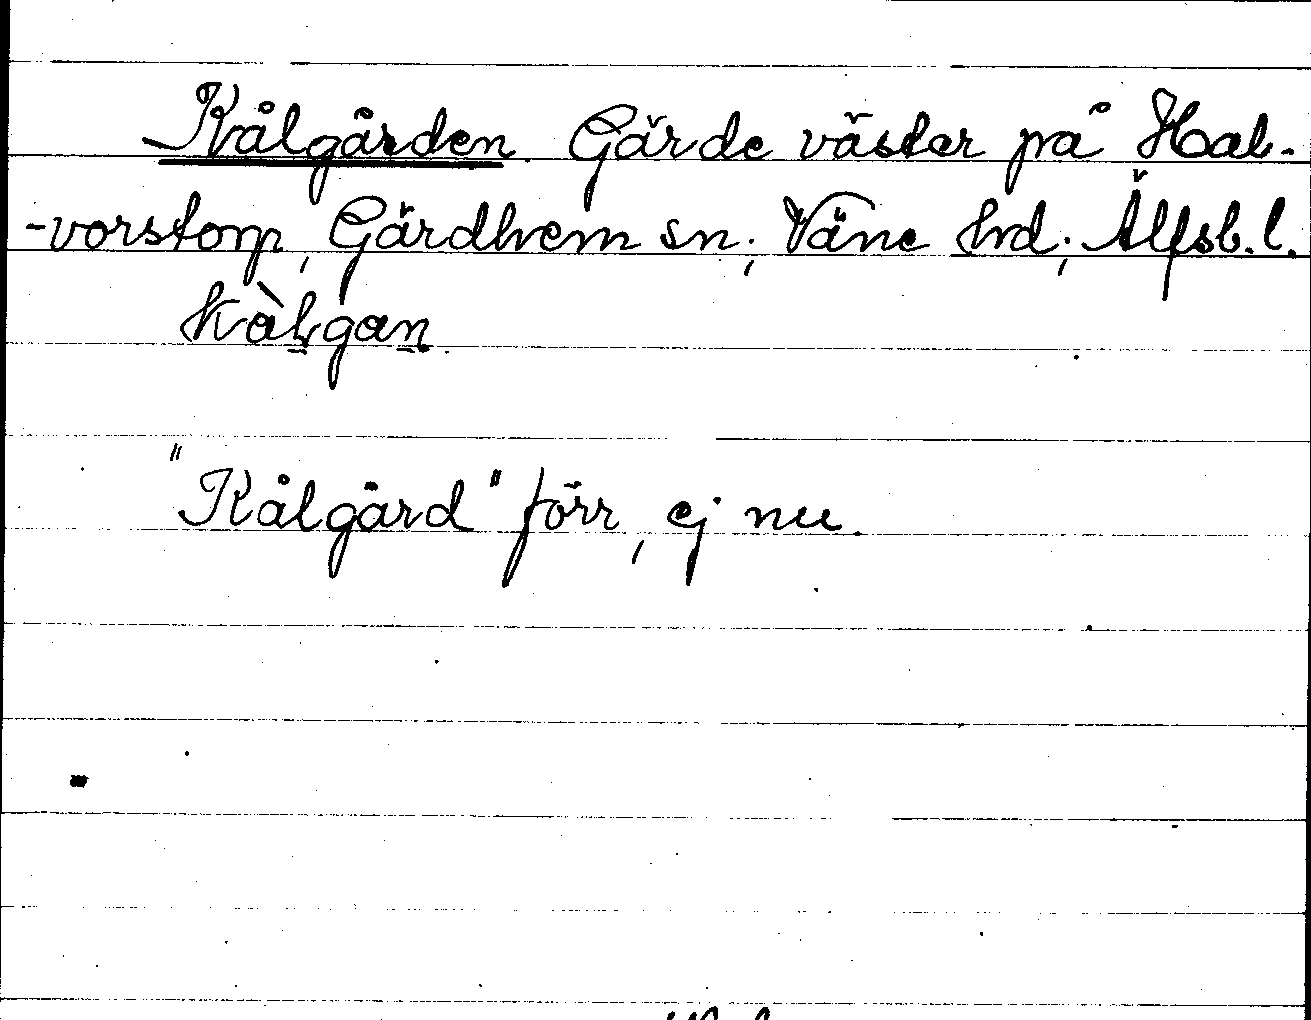 Kålgården. Gärde väster på Hal-
-vorstorp, Gärdhem sn; Väne hd; Älfsb. l.
kàlgan
"Kålgård" förr, ej nu.